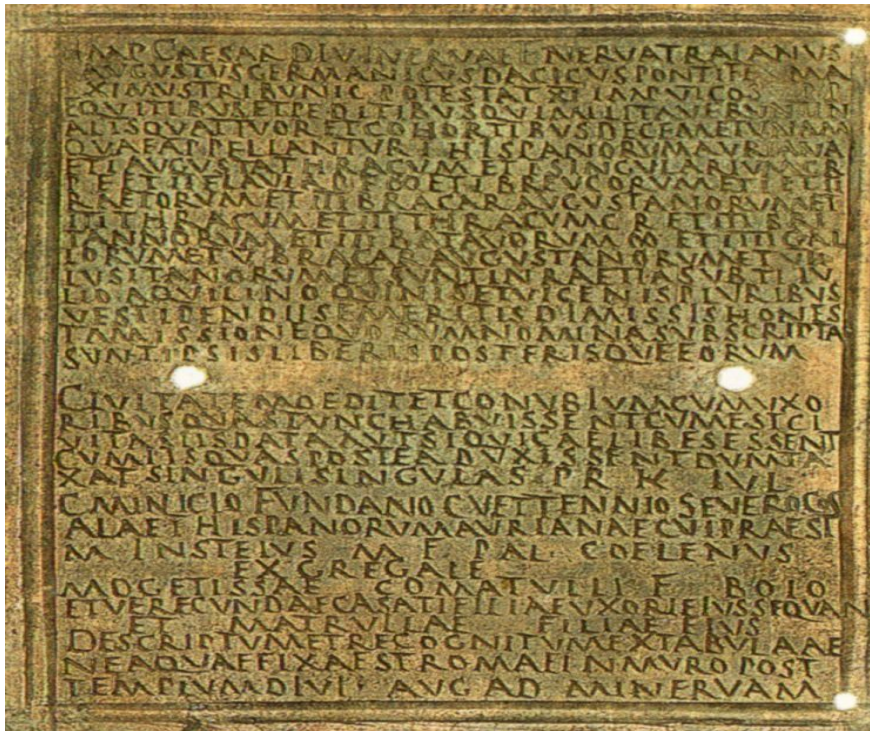 IMP CAESAR DIVI NERVAE F NERVA TRAIANVS
AVGVSTVS GERMANICVS DACICVS PONTIFEX MA
XIMVS TRIBVNIC POTESTAT XI IMP VI COS V P P
EQVITIBVS ET PEDITIBVS QVI MILITAVERVNT IN
ALIS QVATTVOR ET COHORTIBVS DECEM ET VNAM
QVAE APPELLANTVR I HISPANORVM AVRIANA
ET I AVGVSTA THRACVM ET I SINGVLARIVM C R
P F ET II FLAVIA ET I BREVCORVM ET I ET II
RAETORVM ET III BRACARAVGVSTANORVM ET
III THRACVM ET III THRACVM C R ET III BRI
TANNORVM ET III BATAVORVM ET IIII GAL
LORVM ET V BRACARAVGVSTANORVM ET VII
LVSITANORVM ET SVNT IN RAETIA SVB TI IV
LIO AQVILINO QVINIS ET VICENIS PLVRIBVS
VE STIPENDIIS EMERITIS DIMISSIS HONES
TA MISSIONE QVORVM NOMINA SVBSCRIPTA
SVNT IPSIS LIBERIS POSTERISQVE EORVM
CIVITATEM DEDIT ET CONVBIVM CVM VXO
RIBVS QVAS TVNC HABVISSENT CVM EST CI
VITAS IIS DATA AVT SIQVI CAELIBES ESSENT
CVM IIS QVAS POSTEA DVXISSENT DVMTA
XAT SINGVLI SINGVLAS P R K IVL
C MINICIO FVNDANO C VETTENNIO SEVERO COS
ALAE I HISPANORVM AVRIANAE CVI PRAEST
M INSTEIVS M F PAL COELENVS
EX GREGALE
MOGETISSAE COMATVLLI F BOIO
ET VERECVNDAE CASATI FILIAE VXORI EIVS SEQVAN
ET MATRVLLAE FILIAE EIVS
DESCRIPTVM ET RECOGNITVM EX TABVLA AE
NEA QVAE FIXA EST ROMAE IN MVRO POST
TEMPLVM DIVI AVG AD MINERVAM